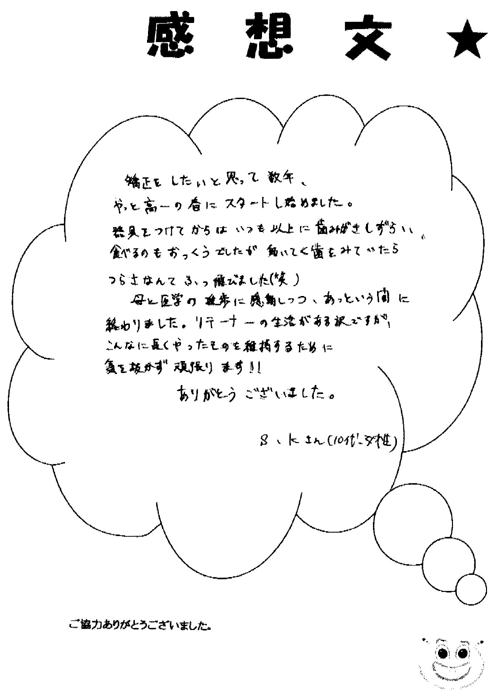 感想文★
矯正をしたいと思って数年、
やっと高一の春にスタートし始めました。
器具をつけてからはいつも以上に歯みがきしずらい、
食べるのもおっくうでしたが動いてく歯をみていたら
つらさなんてふっ飛びました(笑)
母と医学の進歩に感動しつつ、あっという間に
終わりました。リテーナーの生活がある訳ですが、
こんなに長くやったものを維持するために
気を抜かず頑張ります!!
ありがとうございました。
S.Kさん(10代、女性)
ご協力ありがとうございました。